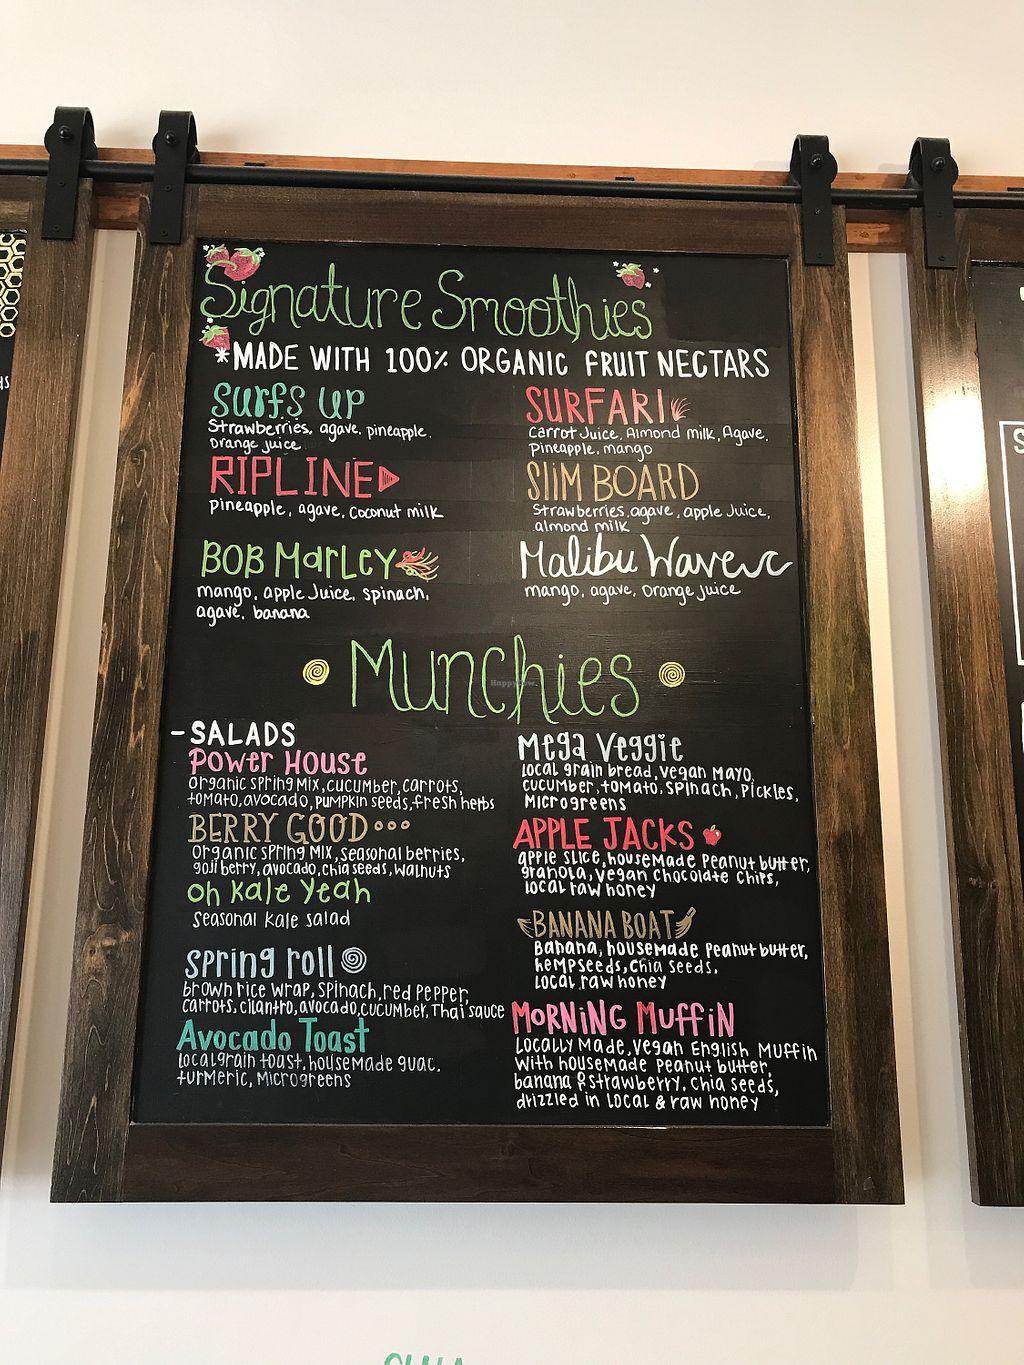 Signature Smoothies
*MADE WITH 100% ORGANIC FRUIT NECTARS
Surfs Up
Strawberries, agave, pineapple,
orange juice
RIPLINE
pineapple, agave, coconut milk
BOB Marley
mango, apple Juice, spinach,
agave, banana
SURFARI
Carrot Juice, Almond milk, Agave,
pineapple, mango
SLIM BOARD
Strawberries, agave, apple Juice,
almond milk
Malibu Wave
mango, agave, orange juice
Munchies
-SALADS
POWER HOUSE
Organic Spring Mix, cucumber, carrots,
tomato, avocado, pumpkin seeds, fresh herbs
BERRY GOOD...
Organic Spring Mix, seasonal berries,
goji berry, avocado, chia seeds, walnuts
Oh Kale Yeah
Seasonal Kale Salad
spring roll
brown rice wrap, spinach, red pepper,
carrots, cilantro, avocado, cucumber, Thai sauce
Avocado Toast
local grain toast, housemade guac,
turmeric, microgreens
Mega Veggie
local grain bread, vegan mayo,
cucumber, tomato, spinach, pickles,
Microgreens
APPLE JACKS
apple slice, housemade peanut butter,
granola, vegan chocolate chips,
local raw honey
BANANA BOAT
Banana, housemade peanut butter,
hempseeds, chia seeds,
local raw honey
MORNING MUFFIN
Locally Made, vegan English Muffin
with housemade peanut butter,
banana & strawberry, chia seeds,
drizzled in local & raw honey